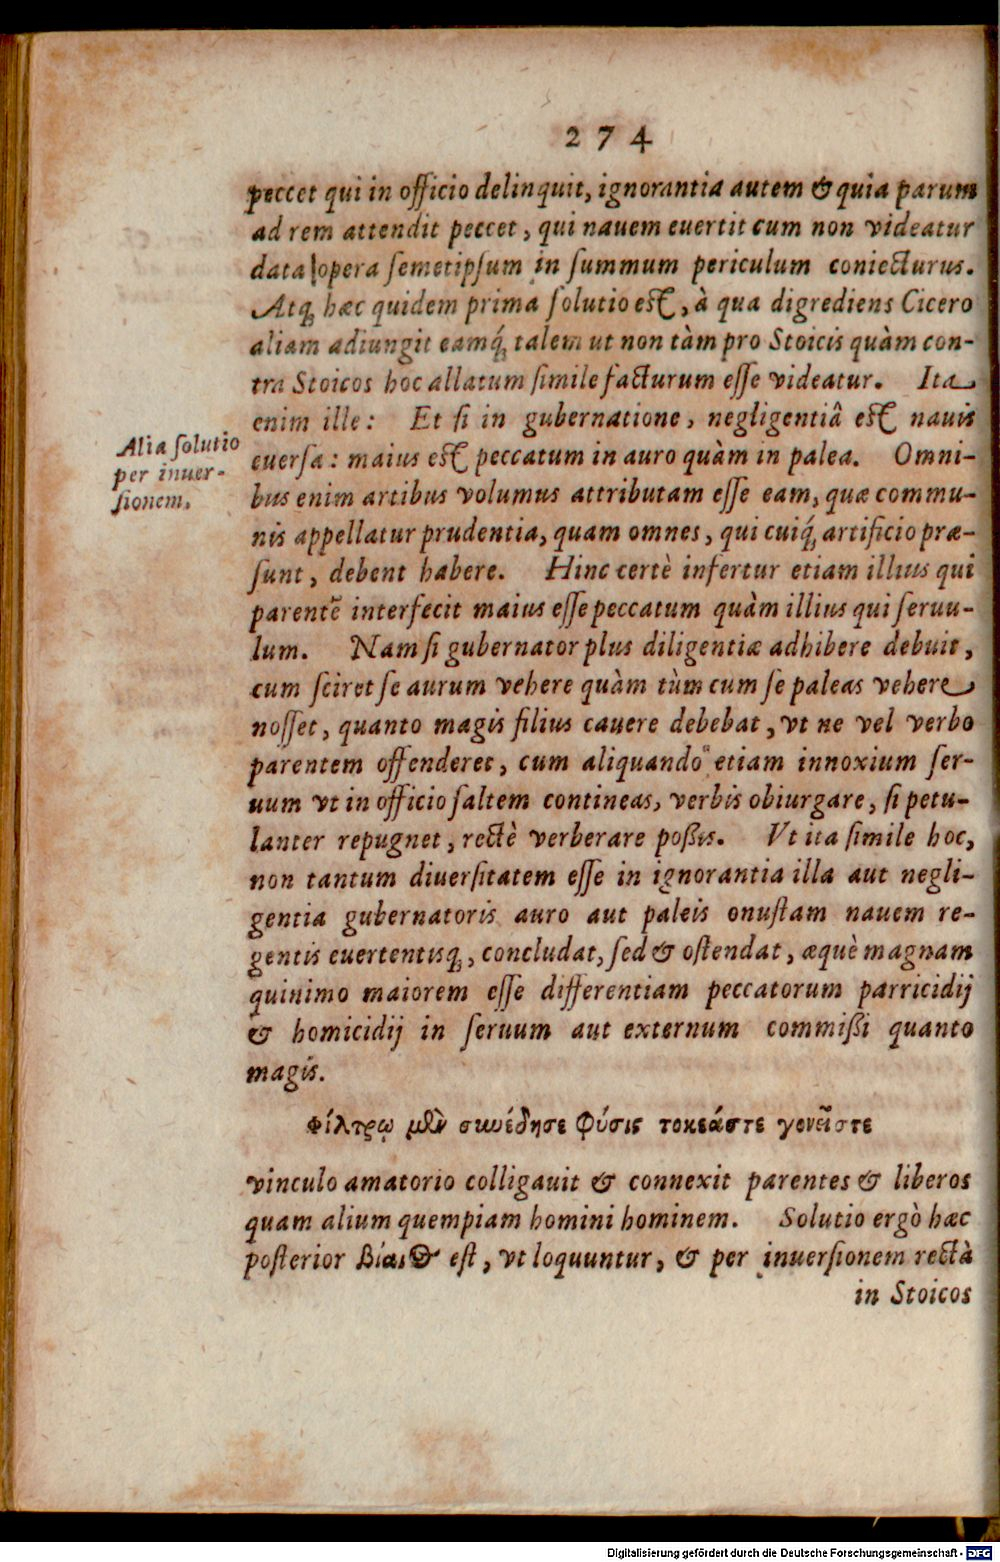 274
peccet qui in officio delinquit, ignorantia autem & quia parum
ad rem attendit peccet, qui nauem euertit cum non videatur
data opera semetipsum in summum periculum coniecturus.
Atq́; hæc quidem prima solutio est, à qua digrediens Cicero
aliam adiungit eamq́; talem ut non tàm pro Stoicis quàm con-
tra Stoicos hoc allatum simile facturum esse videatur. Ita
enim ille: Et si in gubernatione, negligentiâ est nauis
Alia solutio
per inuer-
sionem.
euersa: maius est peccatum in auro quàm in palea. Omni-
bus enim artibus volumus attributam esse eam, quæ commu-
nis appellatur prudentia, quam omnes, qui cuiq́; artificio præ-
sunt, debent habere. Hinc certè infertur etiam illius qui
parentẽ interfecit maius esse peccatum quàm illius qui seruu-
lum. Nam si gubernator plus diligentiæ adhibere debuit,
cum sciret se aurum vehere quàm tùm cum se paleas vehere
nosset, quanto magis filius cauere debebat, vt ne vel verbo
parentem offenderet, cum aliquando etiam innoxium ser-
uum vt in officio saltem contineas, verbis obiurgare, si petu-
lanter repugnet, rectè verberare poßis. Vt ita simile hoc,
non tantum diuersitatem esse in ignorantia illa aut negli-
gentia gubernatoris auro aut paleis onustam nauem re-
gentis euertentisq́;, concludat, sed & ostendat, æquè magnam
quinimo maiorem esse differentiam peccatorum parricidij
& homicidij in seruum aut externum commißi quanto
magis.
Φίλτρῳ μὲν συνέδησε φύσις τοκεάστε γενεᾶστε
vinculo amatorio colligauit & connexit parentes & liberos
quam alium quempiam homini hominem. Solutio ergò hæc
posterior βίαιος est, vt loquuntur, & per inuersionem rectà
in Stoicos
Digitalisierung gefördert durch die Deutsche Forschungsgemeinschaft - DFG